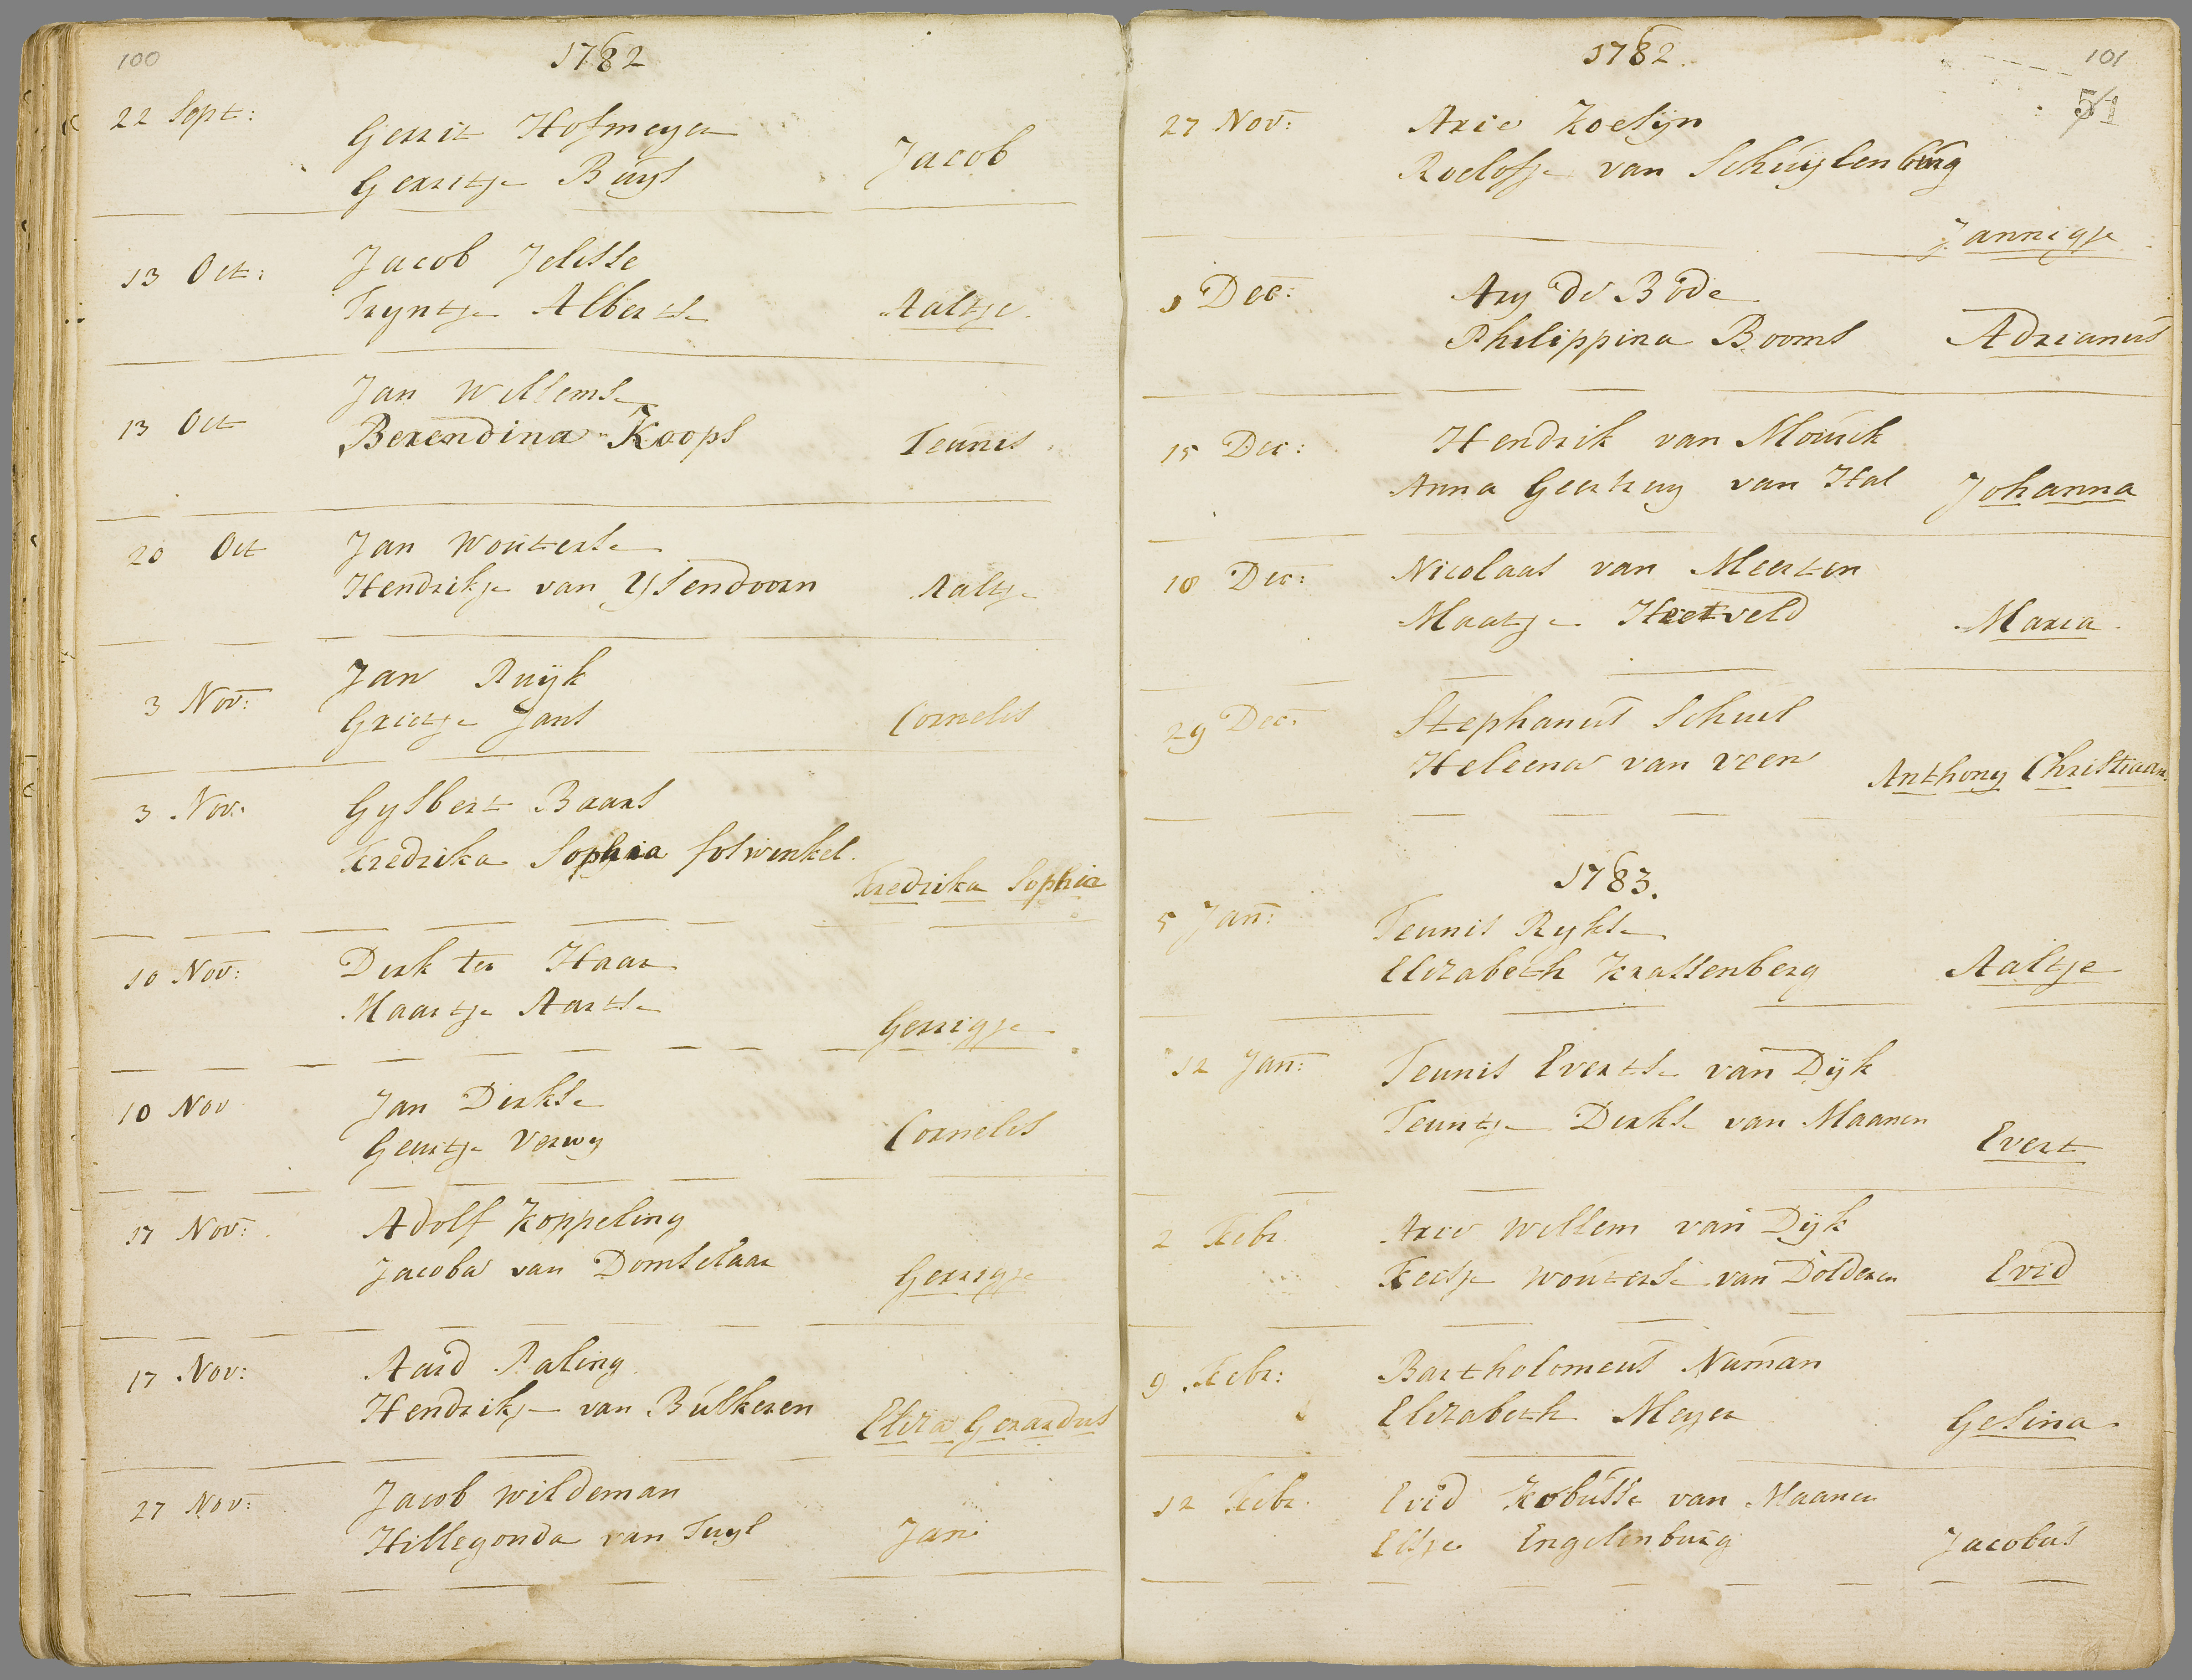 100
1782
22 Sept:
Gerrit Hofmeyer
Gerritje Buys
Jacob
13 Oct:
Jacob Jelisse
Tryntje Albertse
Aaltje
13 Oct
Jan Willemse
Berendina Koops
Teunis
20 Oct
Jan Wouterse
Hendrikje van Ysendoorn
Aaltje
3 Nov:
Jan Ruijk
Grietje Jans
Cornelis
3 Nov:
Gysbert Baars
Fredrika Sophia
Fredrika Sophia
10 Nov:
Dirk ter Haar
Maartje Aartse
Gerrigje
10 Nov
Jan Dirkse
Geurtje Verwy
Cornelis
17 Nov:
Adolf Koppeling
Jacoba van Domselaar
Gerrigje
17 Nov:
Aard Paling
Hendrikje van Bülkeren
Eliza Gerardus
27 Nov:
Jacob Wildeman
Hillegonda van Tuyl
Jan
1782.
101
51
27 Nov:
Arie Koelyn
Roelofje van Schuylenburg
Jannigje
Dec:
Ary de Bode
Philippina Booms
Adrianus
15 Dec:
Hendrik van Mourik
Anna van Hal
Johanna
18 Dec:
Nicolaas van Meerten
Maatje Heetveld
Maria
29 Dec:
Stephanus Schuil
Heleena van Veen
Anthony Christiaan
1783.
5 Jan:
Teunis Rykse
Elizabeth Krassenberg
Aaltje
12 Jan:
Teunis Evertse van Dijk
Teuntje Dirkse van Maanen
Evert
2 Febr
Arie Willem van Dijk
Wouterse van Dolderen
Evid
9 Febr:
Bartholomeus Numan
Elizabeth Meyer
Gesina
12 Febr.
Evid Kobusse van Maanen
Elsje Engelenburg
Jacobus